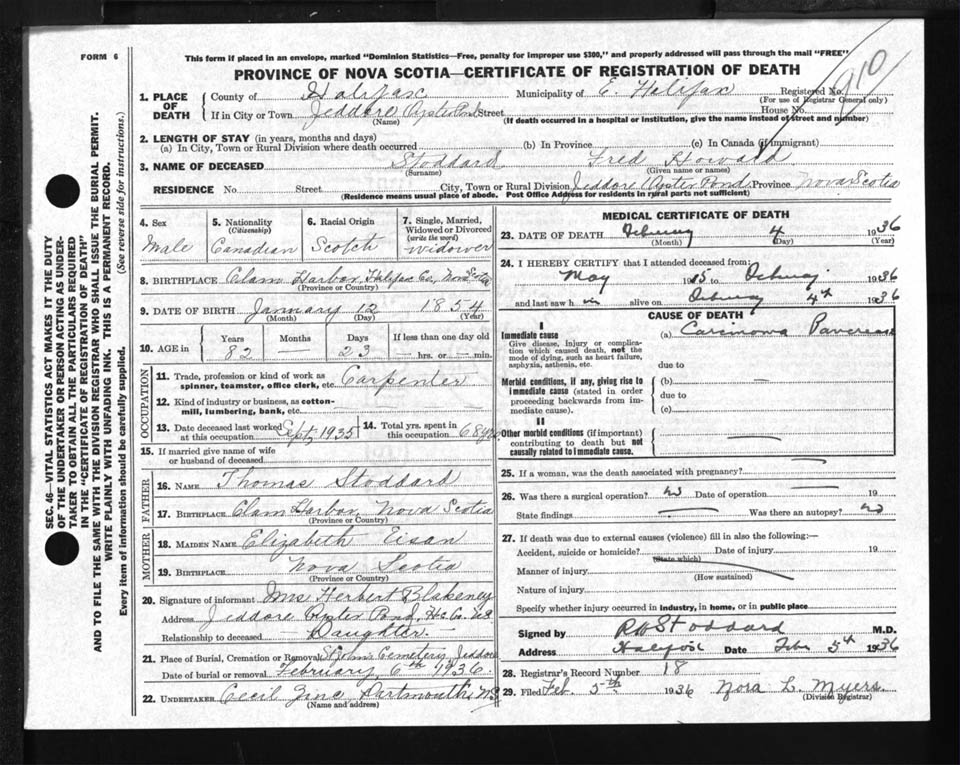 FORM 6
This form if placed in an envelope, marked "Dominion Statistics—Free, penalty for improper use $300," and properly addressed will pass through the mail "FREE"
PROVINCE OF NOVA SCOTIA—CERTIFICATE OF REGISTRATION OF DEATH
1. PLACE OF DEATH County of Halifax Municipality of E. Halifax Registered No.
(For use of Registrar General only)
If in City or Town Jeddore Oyster Pond Street House No.
(Name) (If death occurred in a hospital or institution, give the name instead of street and number)
2. LENGTH OF STAY (in years, months and days)
(a) In City, Town or Rural Division where death occurred (b) In Province (c) In Canada (if immigrant)
3. NAME OF DECEASED Stoddard Fred Howard
(Surname) (Given name or names)
RESIDENCE No. Street City, Town or Rural Division Jeddore Oyster Pond Province Nova Scotia
(Residence means usual place of abode. Post Office Address for residents in rural parts not sufficient)
4. Sex
Male
5. Nationality
(Citizenship)
Canadian
6. Racial Origin
Scotch
7. Single, Married, Widowed or Divorced
(write the word)
widower
8. BIRTHPLACE Clam Harbor, Halifax Co, Nova Scotia
(Province or Country)
9. DATE OF BIRTH January 12 1854
(Month) (Day) (Year)
10. AGE in Years Months Days If less than one day old
82 — 23 hrs. or min.
OCCUPATION
11. Trade, profession or kind of work as spinner, teamster, office clerk, etc. Carpenter
12. Kind of industry or business, as cotton-mill, lumbering, bank, etc.
13. Date deceased last worked at this occupation Sept, 1935
14. Total yrs. spent in this occupation 68 yrs
15. If married give name of wife or husband of deceased
FATHER
16. NAME Thomas Stoddard
17. BIRTHPLACE Clam Harbor, Nova Scotia
(Province or Country)
MOTHER
18. MAIDEN NAME Elizabeth Eisan
19. BIRTHPLACE Nova Scotia
(Province or Country)
20. Signature of informant Mrs Herbert Blakeney
Address Jeddore Oyster Pond, Hx Co. NS
Relationship to deceased — Daughter —
21. Place of Burial, Cremation or Removal St John's Cemetery, Jeddore
Date of burial or removal February 6th 1936
22. UNDERTAKER Cecil Zinc Dartmouth, N.S.
(Name and address)
MEDICAL CERTIFICATE OF DEATH
23. DATE OF DEATH February 4 1936
(Month) (Day) (Year)
24. I HEREBY CERTIFY that I attended deceased from:
May to February 1936
and last saw him alive on February 4th 1936
CAUSE OF DEATH
I
Immediate cause
Give disease, injury or complication which caused death, not the mode of dying, such as heart failure, asphyxia, asthenia, etc.
(a) Carcinoma Pancreas
due to
Morbid conditions, if any, giving rise to immediate cause (stated in order proceeding backwards from immediate cause).
(b) —
due to
(c)
II
Other morbid conditions (if important) contributing to death but not causally related to immediate cause.
25. If a woman, was the death associated with pregnancy?
26. Was there a surgical operation? no Date of operation 19
State findings Was there an autopsy? no
27. If death was due to external causes (violence) fill in also the following:—
Accident, suicide or homicide? Date of injury 19
(State which)
Manner of injury
(How sustained)
Nature of injury
Specify whether injury occurred in industry, in home, or in public place
Signed by Stoddard M.D.
Address Halifax Date Feb 5th 1936
28. Registrar's Record Number 18
29. Filed Feb. 5th 1936 Nora L. Myers.
(Division Registrar)
SEC. 46—VITAL STATISTICS ACT MAKES IT THE DUTY
OF THE UNDERTAKER OR PERSON ACTING AS UNDER-
TAKER TO OBTAIN ALL THE PARTICULARS REQUIRED
IN THE "CERTIFICATE OF REGISTRATION OF DEATH"
AND TO FILE THE SAME WITH THE DIVISION REGISTRAR WHO SHALL ISSUE THE BURIAL PERMIT.
WRITE PLAINLY WITH UNFADING INK. THIS IS A PERMANENT RECORD.
Every item of information should be carefully supplied. (See reverse side for instructions.)